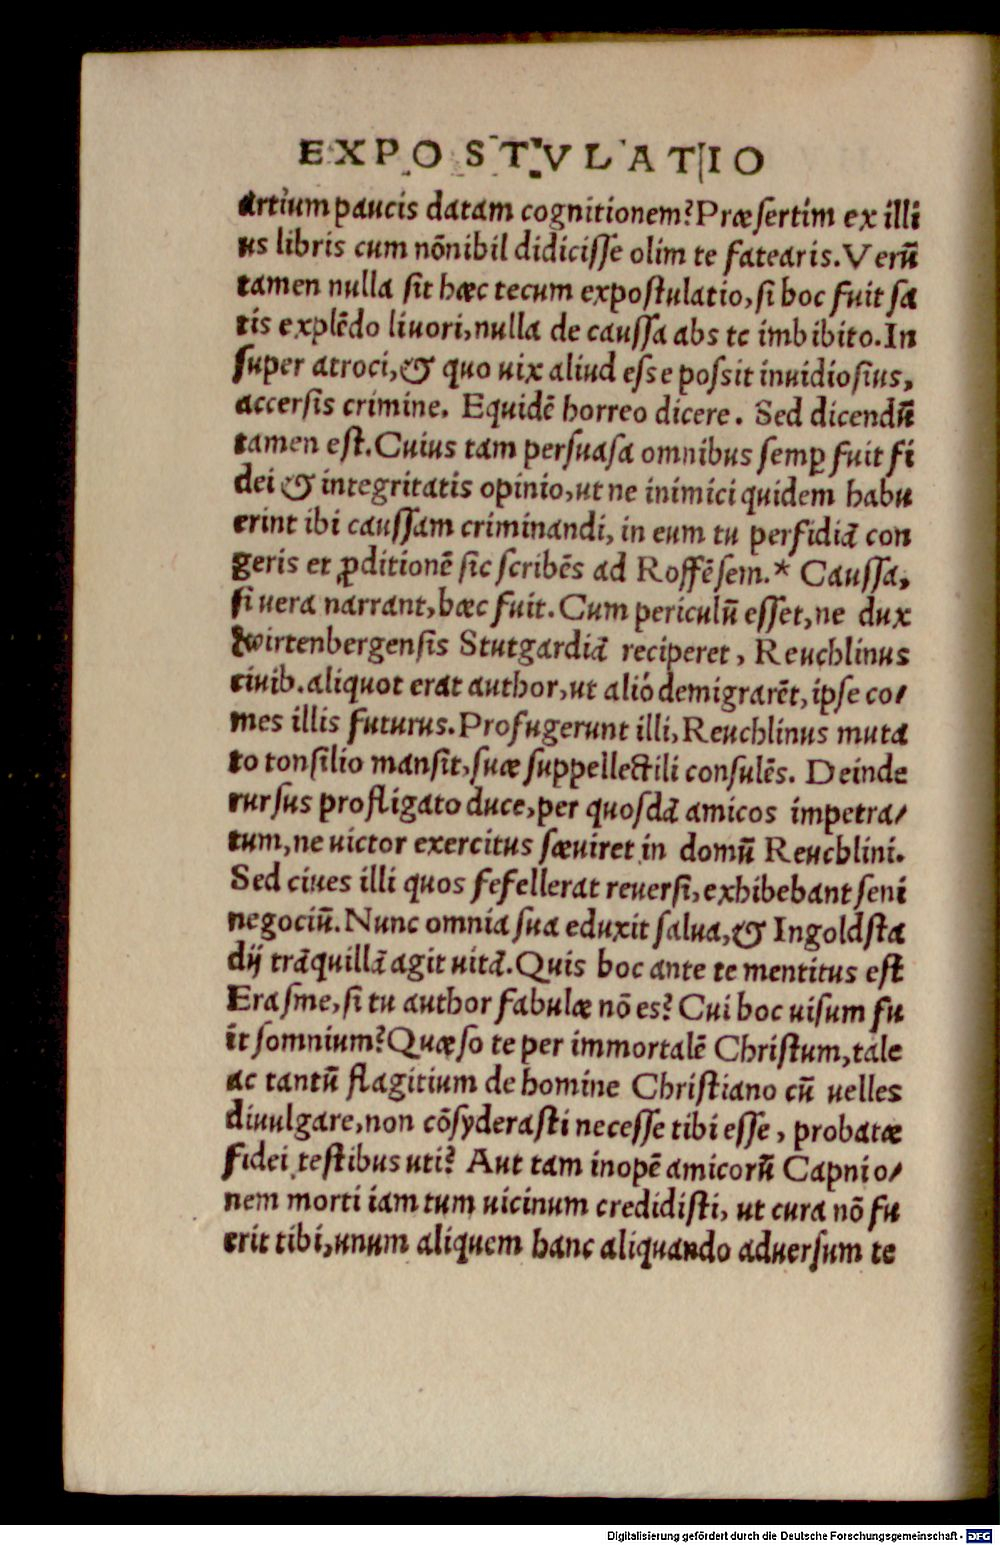 EXPOSTVLATIO
artium paucis datam cognitionem? Præsertim ex illi
us libris cum nõnihil didicisse olim te fatearis. Verũ
tamen nulla sit hæc tecum expostulatio, si hoc fuit sa
tis explẽdo liuori, nulla de caussa abs te imbibito. In
super atroci, & quo uix aliud esse possit inuidiosius,
accersis crimine. Equidẽ horreo dicere. Sed dicendũ
tamen est. Cuius tam persuasa omnibus semꝑ fuit fi
dei & integritatis opinio, ut ne inimici quidem habu
erint ibi caussam criminandi, in eum tu perfidiã con
geris et ꝓditionẽ sic scribẽs ad Roffẽsem.* Caussa,
si uera narrant, hæc fuit. Cum periculũ esset, ne dux
Wirtenbergensis Stutgardiã reciperet, Reuchlinus
ciuib. aliquot erat author, ut aliò demigrarẽt, ipse co/
mes illis futurus. Profugerunt illi, Reuchlinus muta
to tonsilio mansit, suæ suppellectili consulẽs. Deinde
rursus profligato duce, per quosdã amicos impetra/
tum, ne uictor exercitus sæuiret in domũ Reuchlini.
Sed ciues illi quos fefellerat reuersi, exhibebant seni
negociũ. Nunc omnia sua eduxit salua, & Ingoldsta
dij trãquillã agit uitã. Quis hoc ante te mentitus est
Erasme, si tu author fabulæ nõ es? Cui hoc uisum fu
it somnium? Quæso te per immortalẽ Christum, tale
ac tantũ flagitium de homine Christiano cũ uelles
diuulgare, non cõsyderasti necesse tibi esse, probatæ
fidei testibus uti? Aut tam inopẽ amicorũ Capnio/
nem morti iam tum uicinum credidisti, ut cura nõ fu
erit tibi, unum aliquem hanc aliquando aduersum te
Digitalisierung gefördert durch die Deutsche Forschungsgemeinschaft - DFG